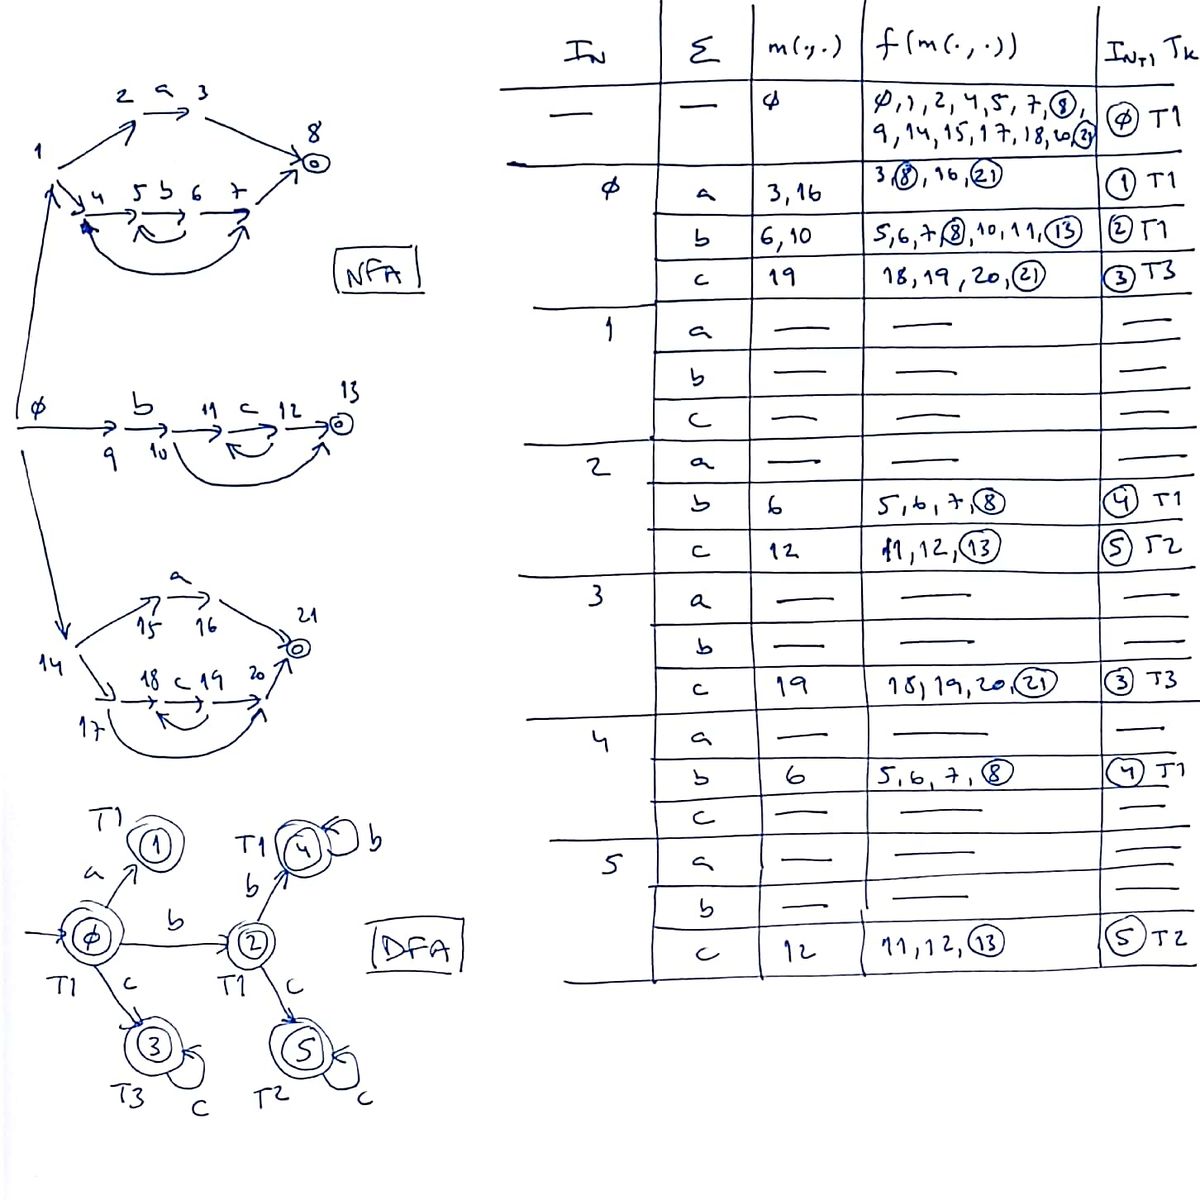 2 a 3
8
1
4 5 b 6 7
NFA
ø b 11 c 12 13
9 10
a
15 16 21
14
18 c 19 20
17
T1 1 T1 4 b
a b
ø b 2 DFA
T1 c T1 c
3 5
T3 c T2 c
IN Σ m(·,·) f(m(·,·)) IN+1 Tk
— — ø ø, 1, 2, 4, 5, 7, 8,
9, 14, 15, 17, 18, 20, 21 ø T1
ø a 3, 16 3, 8, 16, 21 1 T1
b 6, 10 5, 6, 7, 8, 10, 11, 13 2 T1
c 19 18, 19, 20, 21 3 T3
1 a — — —
b — — —
c — — —
2 a — — —
b 6 5, 6, 7, 8 4 T1
c 12 11, 12, 13 5 T2
3 a — — —
b — — —
c 19 18, 19, 20, 21 3 T3
4 a — — —
b 6 5, 6, 7, 8 4 T1
c — — —
5 a — — —
b — — —
c 12 11, 12, 13 5 T2